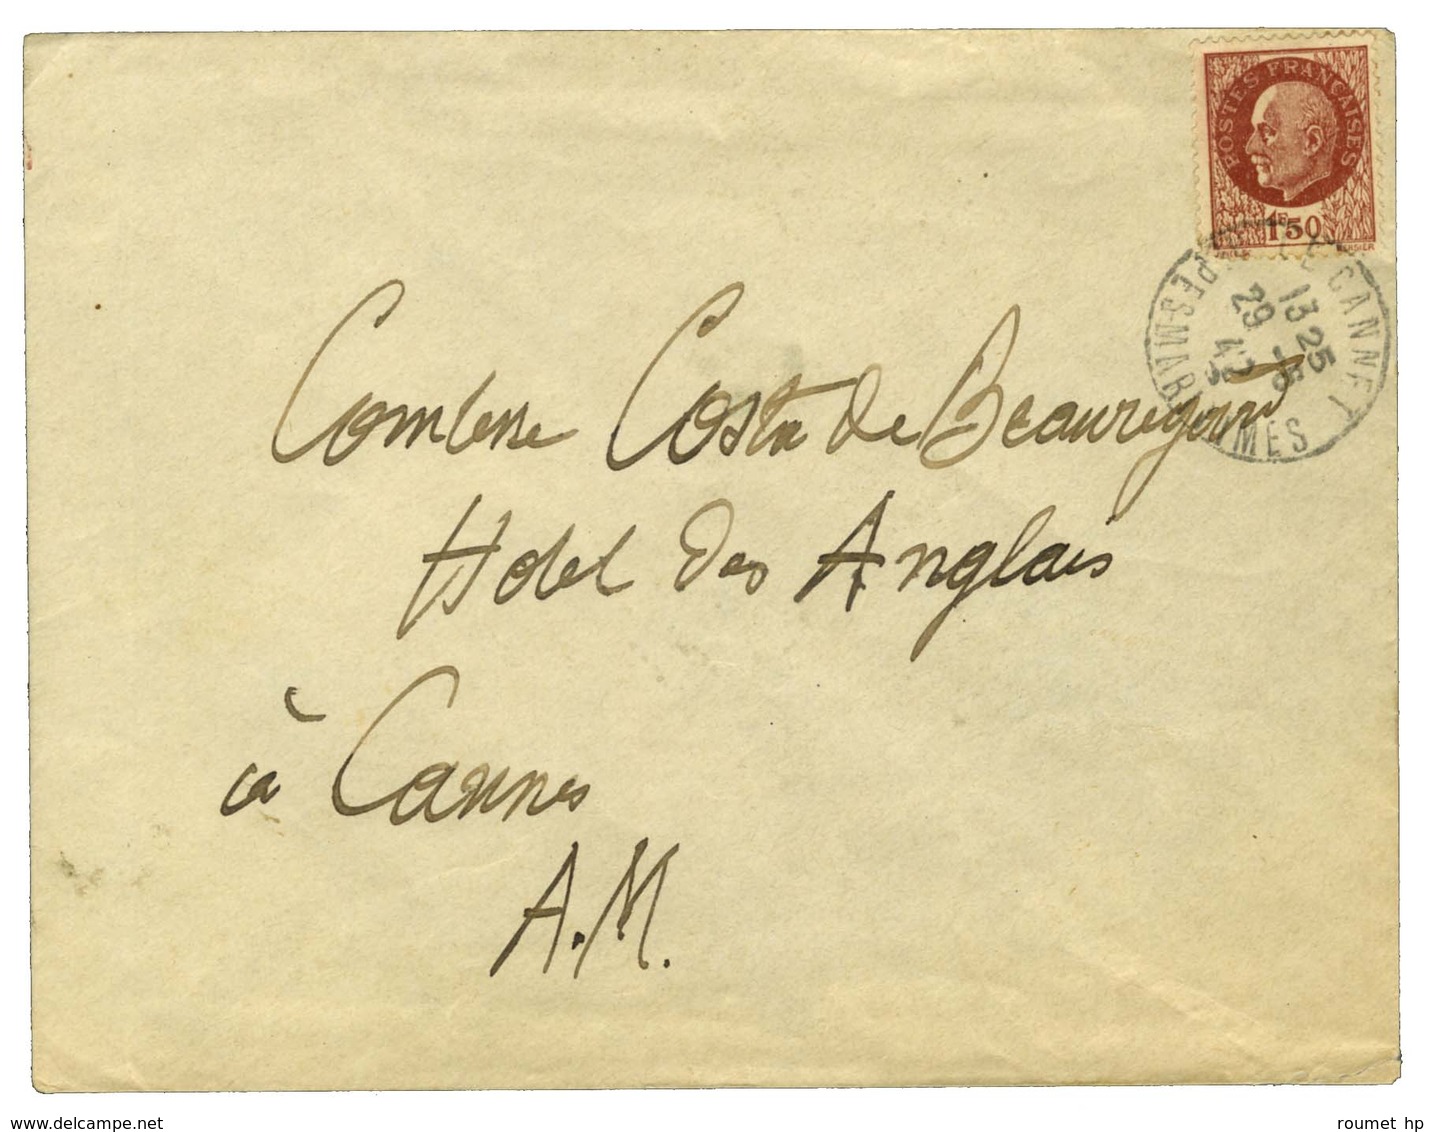 POSTES FRANÇAISES
1F50
LE CANNET
13 25
29 -5
42
ALPES-MARITIMES
Comtesse Costa de Beauregard
Hotel des Anglais
à Cannes
A.M.
www.delcampe.net
roumet hp